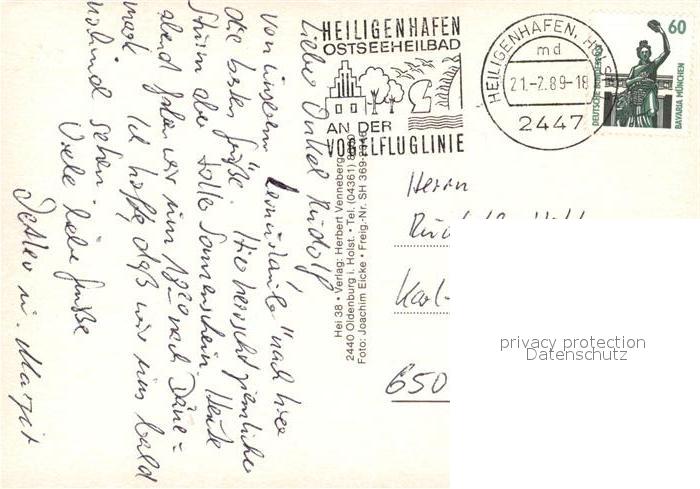 HEILIGENHAFEN
OSTSEEHEILBAD
AN DER
VOGELFLUGLINIE
HEILIGENHAFEN, HO
md
21.-7.89-18
2447
60
DEUTSCHE BUNDESPOST
BAVARIA MÜNCHEN
Lieber Onkel Rudolf
von unserem "Kurzurlaub" nach hier
die besten Grüße. Hier herrscht ziemlicher
Sturm aber toller Sonnenschein. Heute
abend fahren wir um 18 20 nach Däne=
mark. Ich hoffe, daß wir uns bald
mal sehen.
Viele liebe Grüße
Detlev u. Margit
Hei 38 • Verlag: Herbert Venneberg
2440 Oldenburg i. Holst. • Tel. (04361)
Foto: Joachim Eicke • Freig.-Nr. SH 369-
Herrn
Karl-
650
privacy protection
Datenschutz